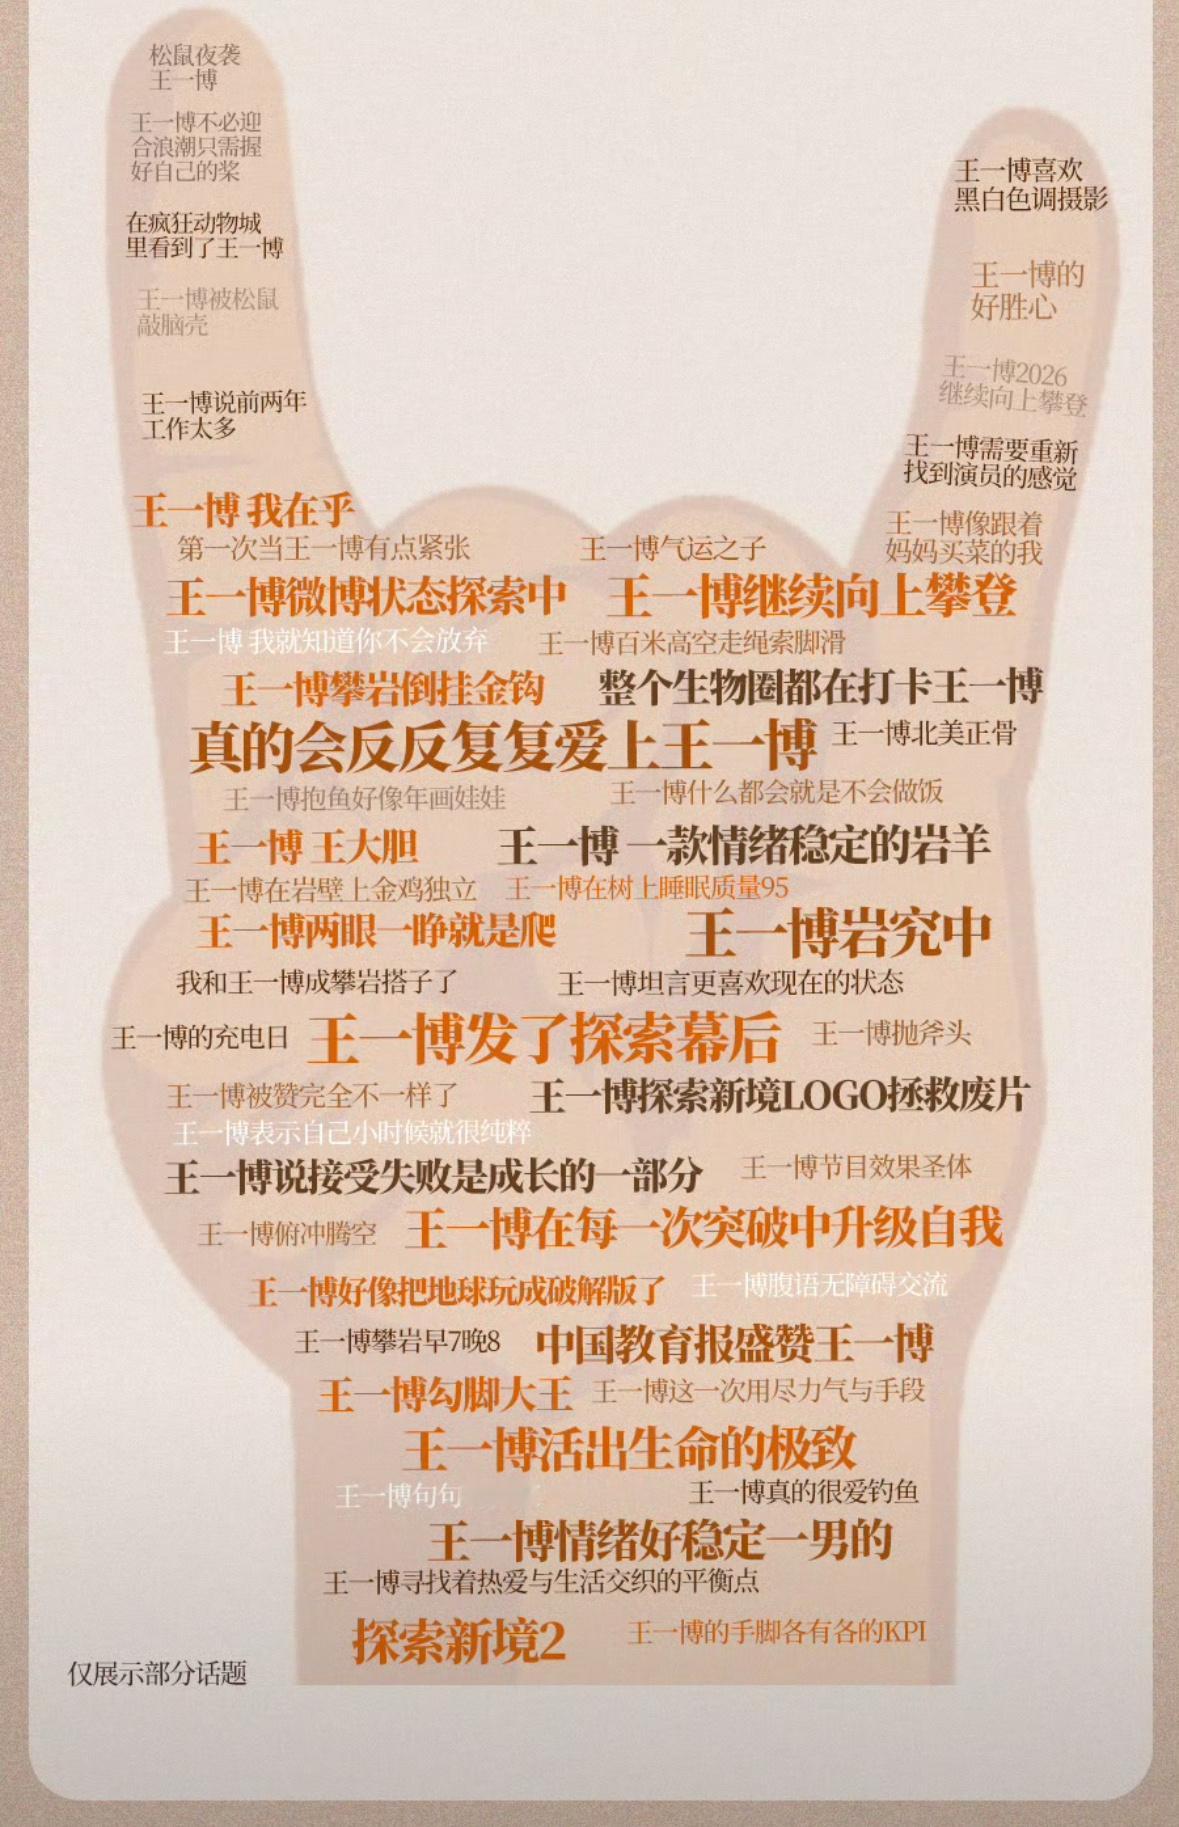 松鼠夜袭
王一博
王一博不必迎
合浪潮只需握
好自己的桨
在疯狂动物城
里看到了王一博
王一博被松鼠
敲脑壳
王一博说前两年
工作太多
王一博喜欢
黑白色调摄影
王一博的
好胜心
王一博2026
继续向上攀登
王一博需要重新
找到演员的感觉
王一博像跟着
妈妈买菜的我
王一博 我在乎
第一次当王一博有点紧张 王一博气运之子
王一博微博状态探索中 王一博继续向上攀登
王一博 我就知道你不会放弃 王一博百米高空走绳索脚滑
王一博攀岩倒挂金钩 整个生物圈都在打卡王一博
真的会反反复复爱上王一博 王一博北美正骨
王一博抱鱼好像年画娃娃 王一博什么都会就是不会做饭
王一博 王大胆 王一博 一款情绪稳定的岩羊
王一博在岩壁上金鸡独立 王一博在树上睡眠质量95
王一博两眼一睁就是爬 王一博岩究中
我和王一博成攀岩搭子了 王一博坦言更喜欢现在的状态
王一博的充电日 王一博发了探索幕后 王一博抛斧头
王一博被赞完全不一样了 王一博探索新境LOGO拯救废片
王一博表示自己小时候就很纯粹
王一博说接受失败是成长的一部分 王一博节目效果圣体
王一博俯冲腾空 王一博在每一次突破中升级自我
王一博好像把地球玩成破解版了 王一博腹语无障碍交流
王一博攀岩早7晚8 中国教育报盛赞王一博
王一博勾脚大王 王一博这一次用尽力气与手段
王一博活出生命的极致
王一博句句 王一博真的很爱钓鱼
王一博情绪好稳定一男的
王一博寻找着热爱与生活交织的平衡点
探索新境2 王一博的手脚各有各的KPI
仅展示部分话题